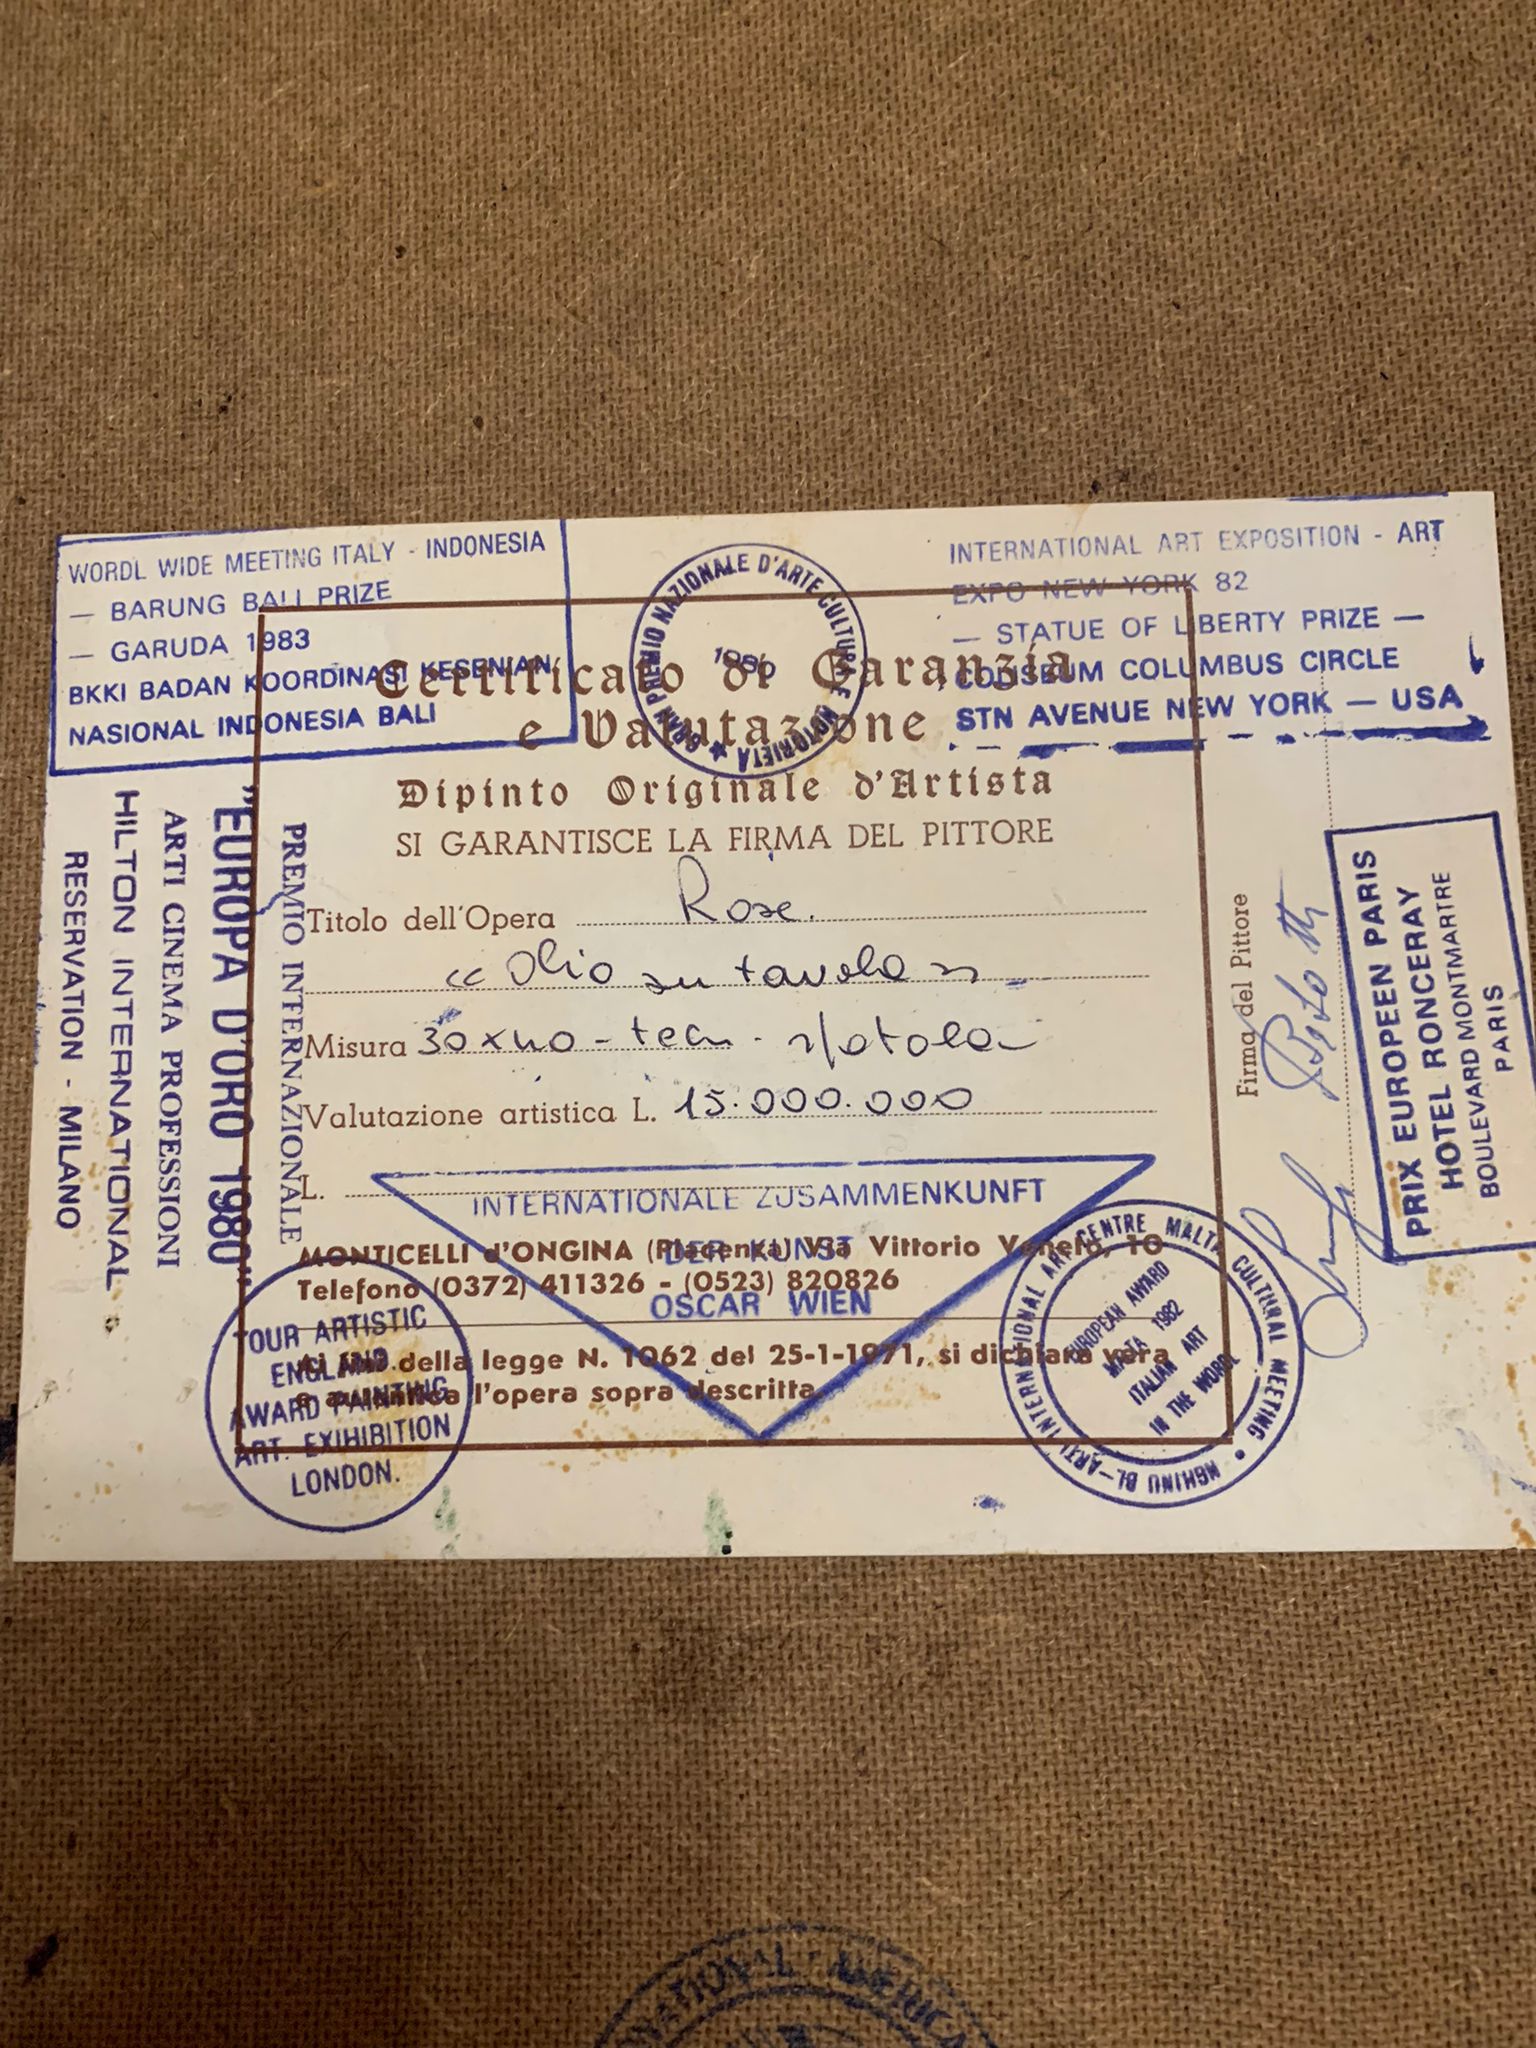 WORDL WIDE MEETING ITALY - INDONESIA
— BARUNG BALI PRIZE
— GARUDA 1983
BKKI BADAN KOORDINASI KESENIAN
NASIONAL INDONESIA BALI
GRAN PREMIO NAZIONALE D'ARTE CULTURA E NOTORIETA ★
INTERNATIONAL ART EXPOSITION - ART
EXPO NEW YORK 82
— STATUE OF LIBERTY PRIZE —
COUSEUM COLUMBUS CIRCLE
STN AVENUE NEW YORK — USA
Certificato di Garanzia
e Valutazione
Dipinto Originale d'Artista
SI GARANTISCE LA FIRMA DEL PITTORE
Titolo dell'Opera Rose.
"Olio su tavola"
Misura 30x40 - tecn. spatola
Valutazione artistica L. 15.000.000
L.
MONTICELLI d'ONGINA (Piacenza) Via Vittorio Veneto, 10
Telefono (0372) 411326 - (0523) 820826
Ai fini della legge N. 1062 del 25-1-1971, si dichiara vera
e autentica l'opera sopra descritta.
PREMIO INTERNAZIONALE
"EUROPA D'ORO 1980"
ARTI CINEMA PROFESSIONI
HILTON INTERNATIONAL
RESERVATION - MILANO
Firma del Pittore
PRIX EUROPEEN PARIS
HOTEL RONCERAY
BOULEVARD MONTMARTRE
PARIS
INTERNATIONALE ZUSAMMENKUNFT
DER KUNST
OSCAR WIEN
TOUR ARTISTIC
ENGLAND.
AWARD PAINTING
ART. EXIHIBITION
LONDON.
INTERNATIONAL ART CENTRE MALTA CULTURAL MEETING • MGHINU BL-ARTI
EUROPEAN AWARD
MALTA 1982
ITALIAN ART
IN THE WORDL